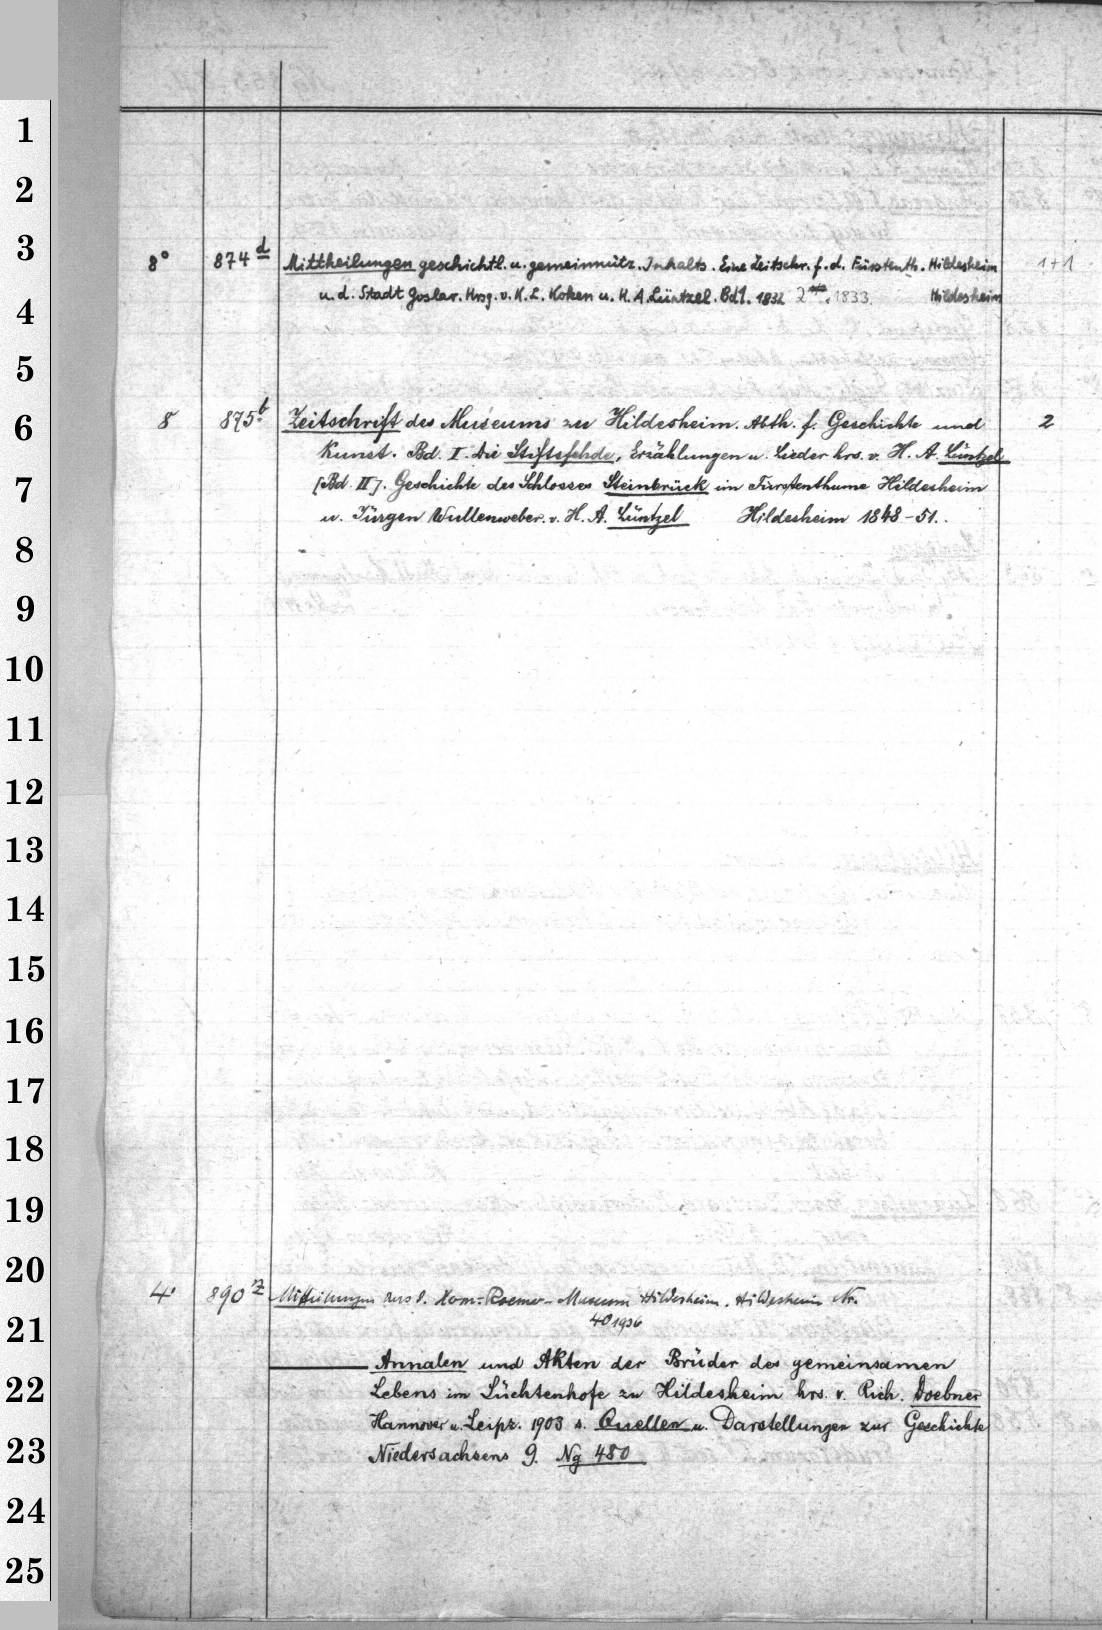 1
2
3
8° 874 d Mittheilungen geschichtl. u. gemeinnütz. Inhalts. Eine Zeitschr. f. d. Fürstenth. Hildesheim 1+1
u. d. Stadt Goslar. Hrsg. v. K. L. Koken u. H. A. Lüntzel. Bd 1. 1832 2 1833. Hildesheim
4
5
6
8 875 b Zeitschrift des Museums zu Hildesheim. Abth. f. Geschichte und 2
Kunst. Bd. I. Die Stiftsfehde, Erzählungen u. Lieder hrs. v. H. A. Lüntzel
7
[Bd. II]. Geschichte des Schlosses Steinbrück im Fürstenthume Hildesheim
u. Jürgen Wullenweber. v. H. A. Lüntzel Hildesheim 1848-51.
8
9
10
11
12
13
14
15
16
17
18
19
20
4° 890 z Mitteilungen aus d. Roemer-Museum Hildesheim. Hildesheim Nr.
40 1936
21
Annalen und Akten der Brüder des gemeinsamen
22
Lebens im Lüchtenhofe zu Hildesheim hrs. v. Rich. Doebner
Hannover u. Leipz. 1903 s. Quellen u. Darstellungen zur Geschichte
23
Niedersachsens 9. Ng 480
24
25